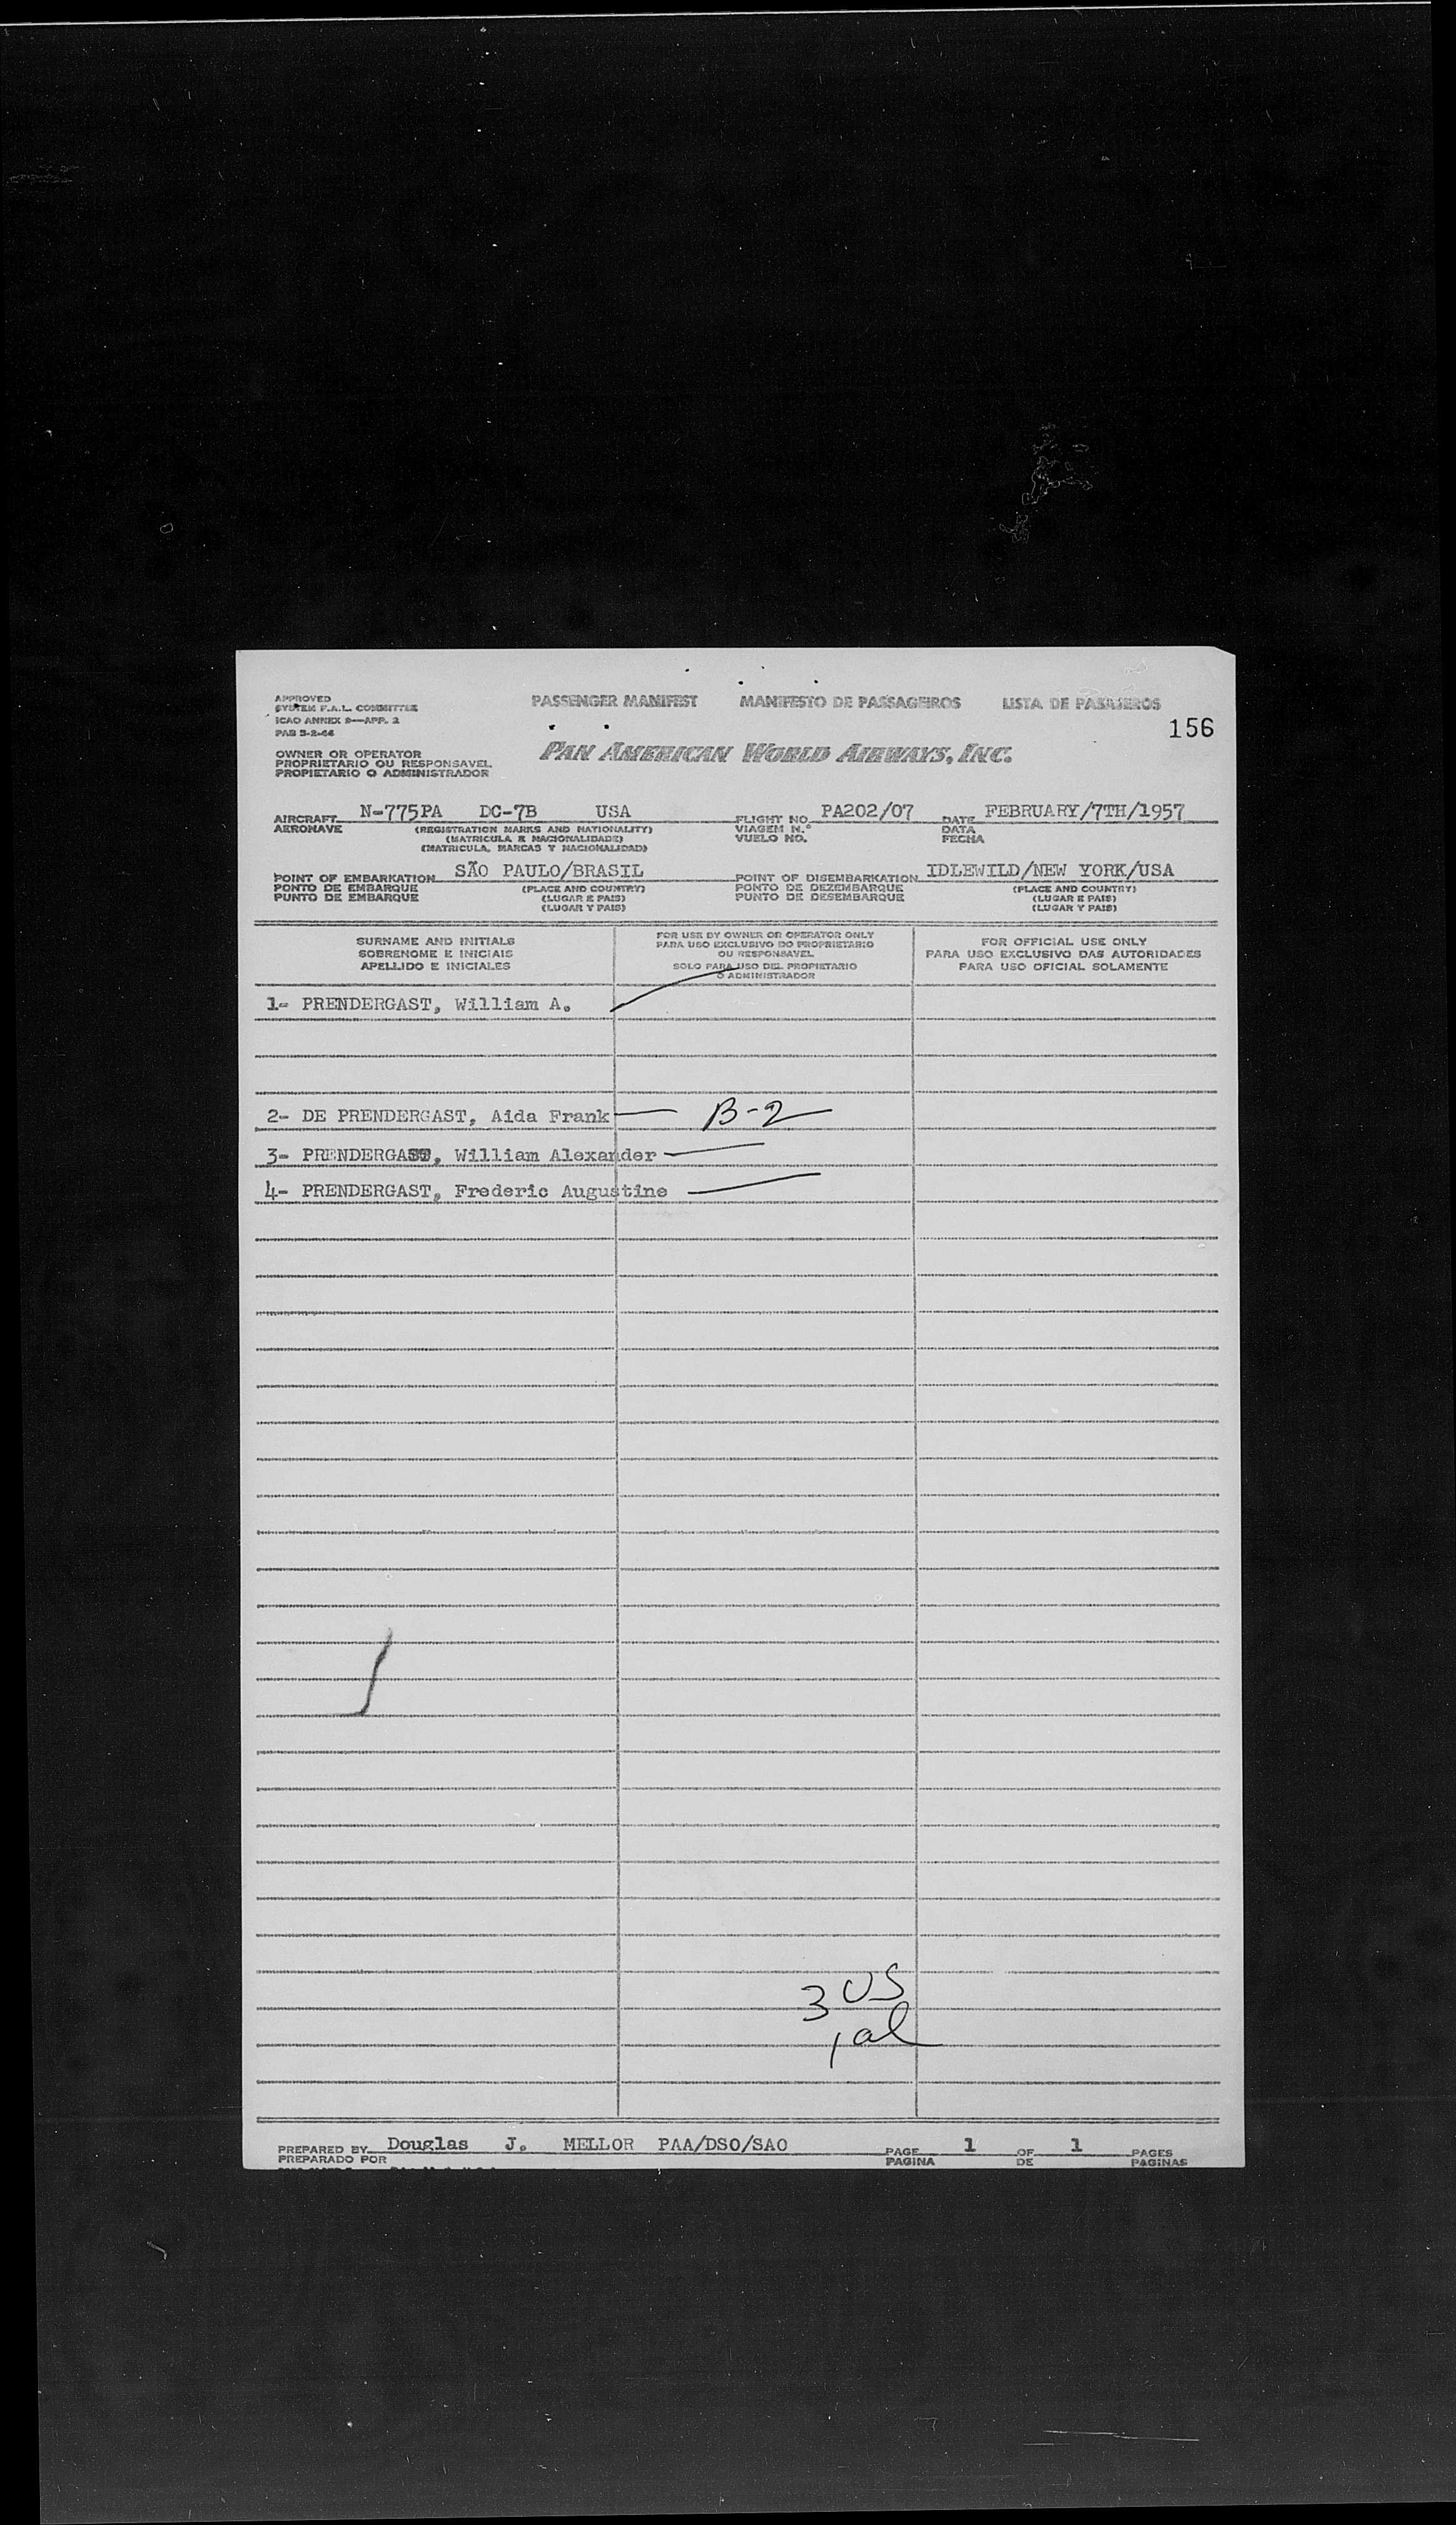 APPROVED
SYSTEM F.A.L. COMMITTEE
ICAO ANNEX 9—APP. 2
PAB 3-2-44
PASSENGER MANIFEST MANIFESTO DE PASSAGEIROS LISTA DE PASAJEROS
156
OWNER OR OPERATOR
PROPRIETARIO OU RESPONSAVEL
PROPIETARIO O ADMINISTRADOR
PAN AMERICAN WORLD AIRWAYS, INC.
AIRCRAFT N-775PA DC-7B USA FLIGHT NO. PA202/07 DATE FEBRUARY/7TH/1957
AERONAVE (REGISTRATION MARKS AND NATIONALITY) VIAGEM N.° DATA
(MATRICULA E NACIONALIDADE) VUELO NO. FECHA
(MATRICULA, MARCAS Y NACIONALIDAD)
POINT OF EMBARKATION SÃO PAULO/BRASIL POINT OF DISEMBARKATION IDLEWILD/NEW YORK/USA
PONTO DE EMBARQUE (PLACE AND COUNTRY) PONTO DE DEZEMBARQUE (PLACE AND COUNTRY)
PUNTO DE EMBARQUE (LUGAR E PAIS) PUNTO DE DESEMBARQUE (LUGAR E PAIS)
(LUGAR Y PAIS) (LUGAR Y PAIS)
SURNAME AND INITIALS
SOBRENOME E INICIAIS
APELLIDO E INICIALES
FOR USE BY OWNER OR OPERATOR ONLY
PARA USO EXCLUSIVO DO PROPRIETARIO
OU RESPONSAVEL
SOLO PARA USO DEL PROPIETARIO
O ADMINISTRADOR
FOR OFFICIAL USE ONLY
PARA USO EXCLUSIVO DAS AUTORIDADES
PARA USO OFICIAL SOLAMENTE
1- PRENDERGAST, William A.
2- DE PRENDERGAST, Aida Frank B-2
3- PRENDERGAST, William Alexander
4- PRENDERGAST, Frederic Augustine
3 US
1 al
PREPARED BY Douglas J. MELLOR PAA/DSO/SAO PAGE 1 OF 1 PAGES
PREPARADO POR PAGINA DE PAGINAS